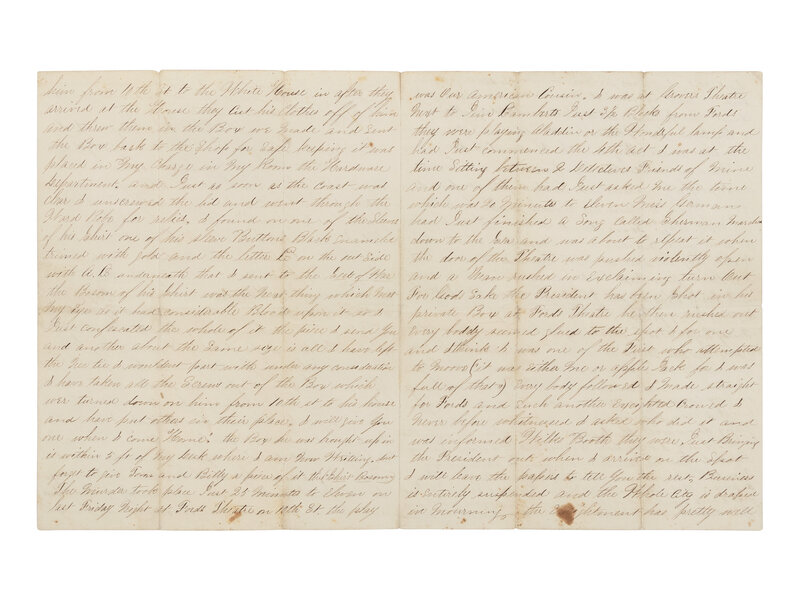 him from 10th st to the White House in after they
arrived at the House they Cut his Clothes off of him
and threw them in the Box we Made and Sent
the Box back to the Shop for Safe Keeping it was
placed in My Charge in My Room the Hardware
Department. and Just as soon as the Coast was
Clear I unscrewed the lid and went through the
for relics, I found on one of the Sleeves
of his Shirt one of his Sleeve Buttons Black Enameled
trimed with gold and the letter L on the out Side
with A.L. underneath that I sent to the Sect of War
the Bosom of his Shirt was the Next thing which Met
My Eye as it had Considerable Blood upon it so I
Just Confiscated the whole of it the piece I Send You
and another about the Same size is all I have left
the I wouldent part with under any consideration
I have taken all the Screws out of the Box which
wer turned down on him from 10th st to his house
and have put others in their place. I will give You
one when I Come Home. the Box he was brought up in
is within 5 ft of my desk where I am Now Writing. dont
forget to give Tom and Billy a piece of it this Shirt Bosom
The Murder took place Just 25 minutes to Eleven on
last Friday Night at Fords Theatre on 10th St the play
was Our American Cousin. I was at Grovers Theatre
Next to Just 3½ Blocks from Fords
they were playing Aladdin or the Wonderful lamp and
had Just Commenced the 4th act I was at the
time Sitting between 2 Detectives Friends of Mine
and one of them had Just asked Me the time
which was 20 minuets to eleven Miss Germans
had Just finished a Song Called Sherman Marched
down to the Sea and was about to repeat it when
the door of the Theatre was pushed violently open
and a Man rushed in Exclaiming turn Out
For God Sake the President has been Shot in his
private Box at Fords Theatre he then rushed out
Every boddy seemed glued to the spot I for one
and I think I was one of the First who attempted
to Move (it was Me or apple Jack for I was
full of that) Every body followed I Made straight
for Fords and Such another Excighted Crowd I
Never before whitnessed I asked who did it and
was informed Wilks Booth they were Just Bringing
the President out when I arrive on the Spot
I will leave the papers to tell You the rest, Buisness
is Entirely suspended and the Whole City is draped
in Mourning. the Excightment has pretty well